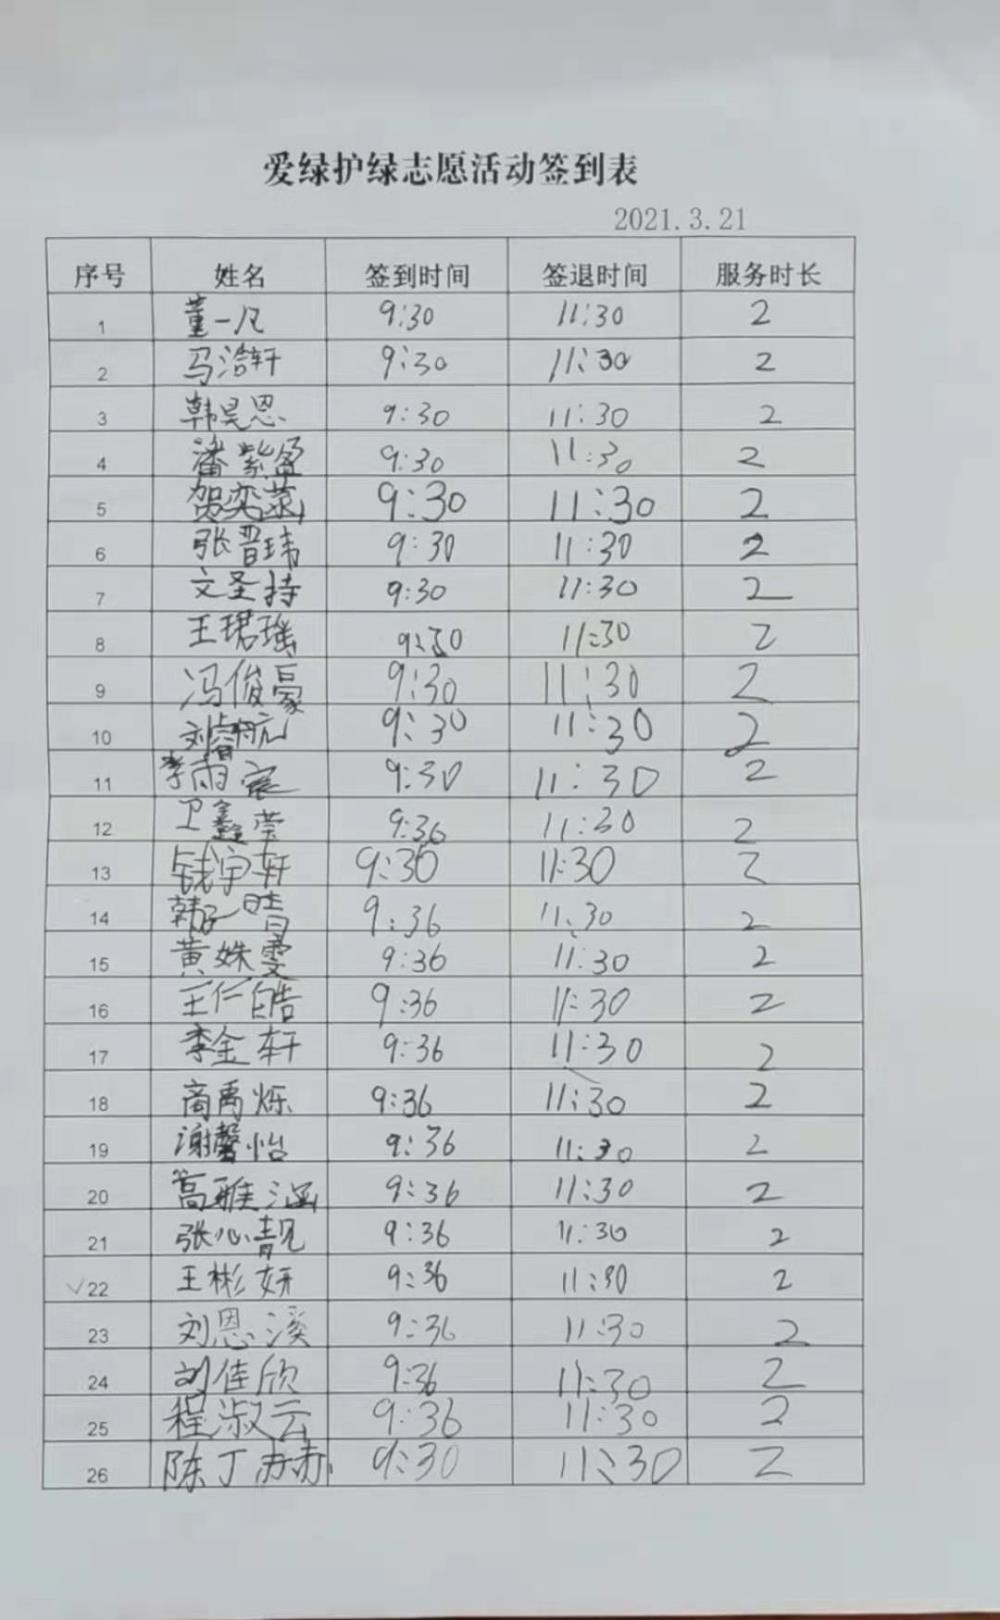 爱绿护绿志愿活动签到表
2021.3.21
序号 姓名 签到时间 签退时间 服务时长
1 董一凡 9:30 11:30 2
2 马浩轩 9:30 11:30 2
3 韩昊恩 9:30 11:30 2
4 潘紫盈 9:30 11:30 2
5 贺奕 9:30 11:30 2
6 张晋玮 9:30 11:30 2
7 文圣持 9:30 11:30 2
8 王珺瑶 9:30 11:30 2
9 冯俊豪 9:30 11:30 2
10 刘睿航 9:30 11:30 2
11 李雨宸 9:30 11:30 2
12 卫鑫莹 9:36 11:30 2
13 钱宇轩 9:30 11:30 2
14 韩子晴 9:36 11:30 2
15 黄姝雯 9:36 11:30 2
16 王仁皓 9:36 11:30 2
17 李金轩 9:36 11:30 2
18 商禹烁 9:36 11:30 2
19 谢馨怡 9:36 11:30 2
20 雅涵 9:36 11:30 2
21 张心靓 9:36 11:30 2
22 王彬妍 9:36 11:30 2
23 刘恩溪 9:36 11:30 2
24 刘佳欣 9:36 11:30 2
25 程淑云 9:36 11:30 2
26 陈丁赫 9:30 11:30 2